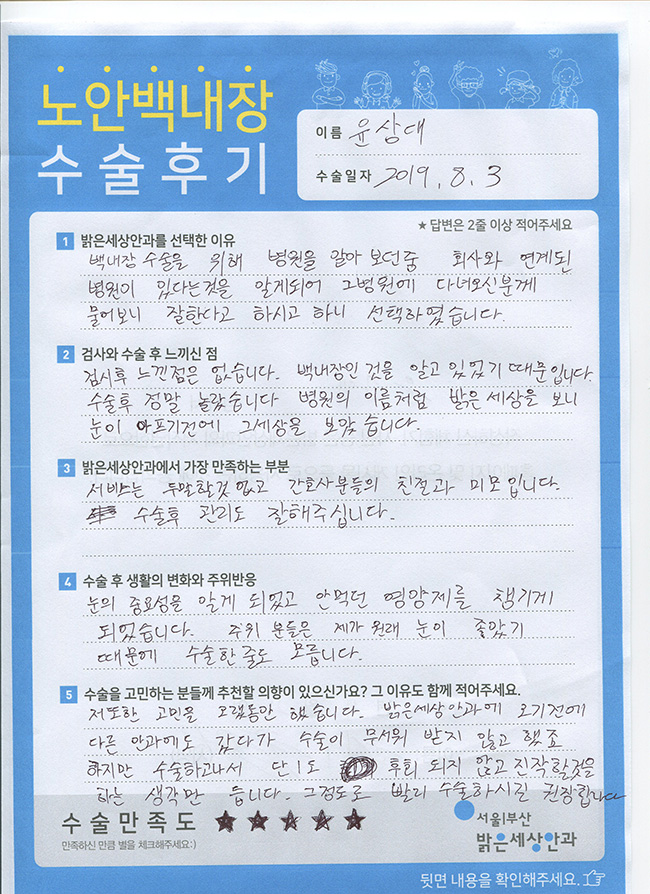 노안백내장
수술후기
이름 윤삼대
수술일자 2019. 8. 3
★ 답변은 2줄 이상 적어주세요
1 밝은세상안과를 선택한 이유
백내장 수술을 위해 병원을 알아 보던중 회사와 연계된
병원이 있다는것을 알게되어 그병원에 다녀오신분께
물어보니 잘한다고 하시고 하니 선택하였습니다.
2 검사와 수술 후 느끼신 점
검사후 느낀점은 없습니다. 백내장인 것을 알고 있었기 때문입니다.
수술후 정말 놀랐습니다 병원의 이름처럼 밝은 세상을 보니
눈이 아프기전에 그세상을 보았습니다.
3 밝은세상안과에서 가장 만족하는 부분
서비스는 두말할것 없고 간호사분들의 친절과 미모입니다.
수술후 관리도 잘해주십니다.
4 수술 후 생활의 변화와 주위반응
눈의 중요성을 알게 되었고 안먹던 영양제를 챙기게
되었습니다. 주위 분들은 제가 원래 눈이 좋았기
때문에 수술한줄도 모릅니다.
5 수술을 고민하는 분들께 추천할 의향이 있으신가요? 그 이유도 함께 적어주세요.
저또한 고민을 오랫동안 했습니다. 밝은세상안과에 오기전에
다른 안과에도 갔다가 수술이 무서워 받지 않고 했죠
하지만 수술하고나서 단1도 후회 되지 않고 진작할것을
하는 생각만 듭니다. 그정도로 빨리 수술하시길 권장합니다
수술만족도 ★★★★★
만족하신 만큼 별을 체크해주세요:)
서울|부산
밝은세상안과
뒷면 내용을 확인해주세요.